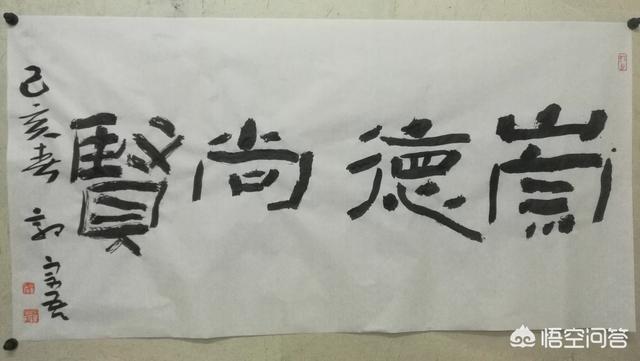 崇德尚賢
己亥春 郭
悟空问答